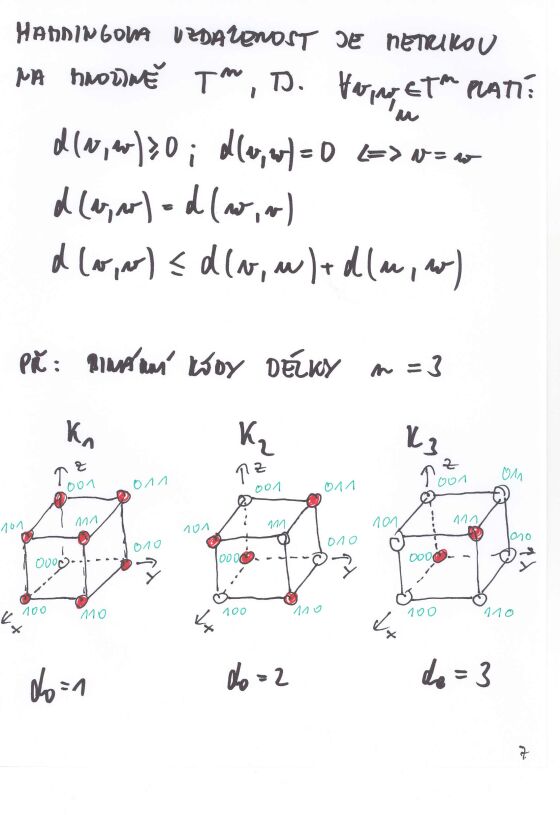 HAMMINGOVA VZDÁLENOST JE METRIKOU
NA MNOŽINĚ Tⁿ, TJ. ∀v,w,u ∈ Tⁿ PLATÍ:
d(v,w) ≥ 0 ; d(v,w) = 0 <=> v = w
d(v,w) = d(w,v)
d(v,w) ≤ d(v,u) + d(u,w)
PŘ: BINÁRNÍ KÓDY DÉLKY n = 3
K₁ K₂ K₃
z 001 011 101 111 000 010 y 100 110 x
z 001 011 101 111 000 010 y 100 110 x
z 001 011 101 111 000 010 y 100 110 x
d₀ = 1 d₀ = 2 d₀ = 3
7